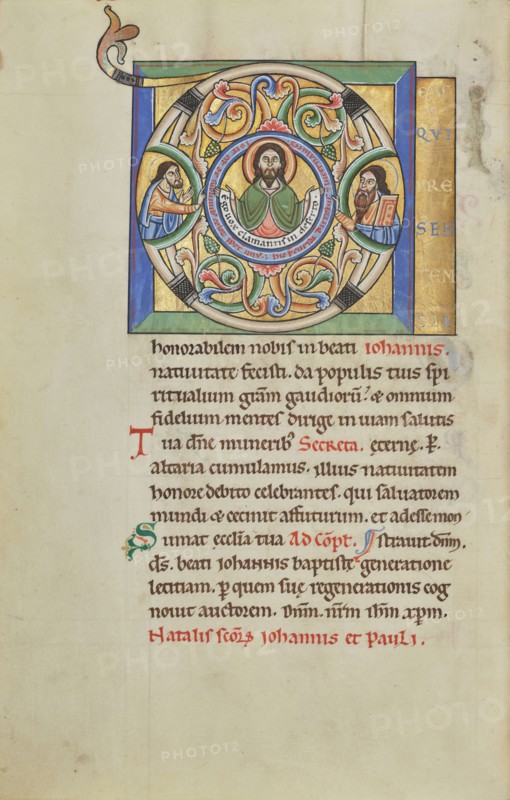 QVI
PRE
SEN
TEM
Ego vox clamantis in deserto
honorabilem nobis in beati iohannis.
natiuitate fecisti. da populis tuis spi
ritualium gr̄am gaudiorū. & omnium
fidelium mentes dirige in uiam salutis
Tua dn̄e munerib' Secreta. eternę. P̲.
altaria cumulamus. illius natiuitatem
honore debito celebrantes. qui saluatorem
mundi & cecinit affuturum. et adesse mon
Sumat ecc̄lia tua Ad Cōpl. straut. dn̄m.
dς. beati iohannis baptistę generatione
letitiam. ꝑ quem suę regenerationis cog
nouit auctorem. Dn̄m. nr̄m ih̄m xp̄m.
Natalis sc̄oꝝ iohannis et pauli.
PHOTO12